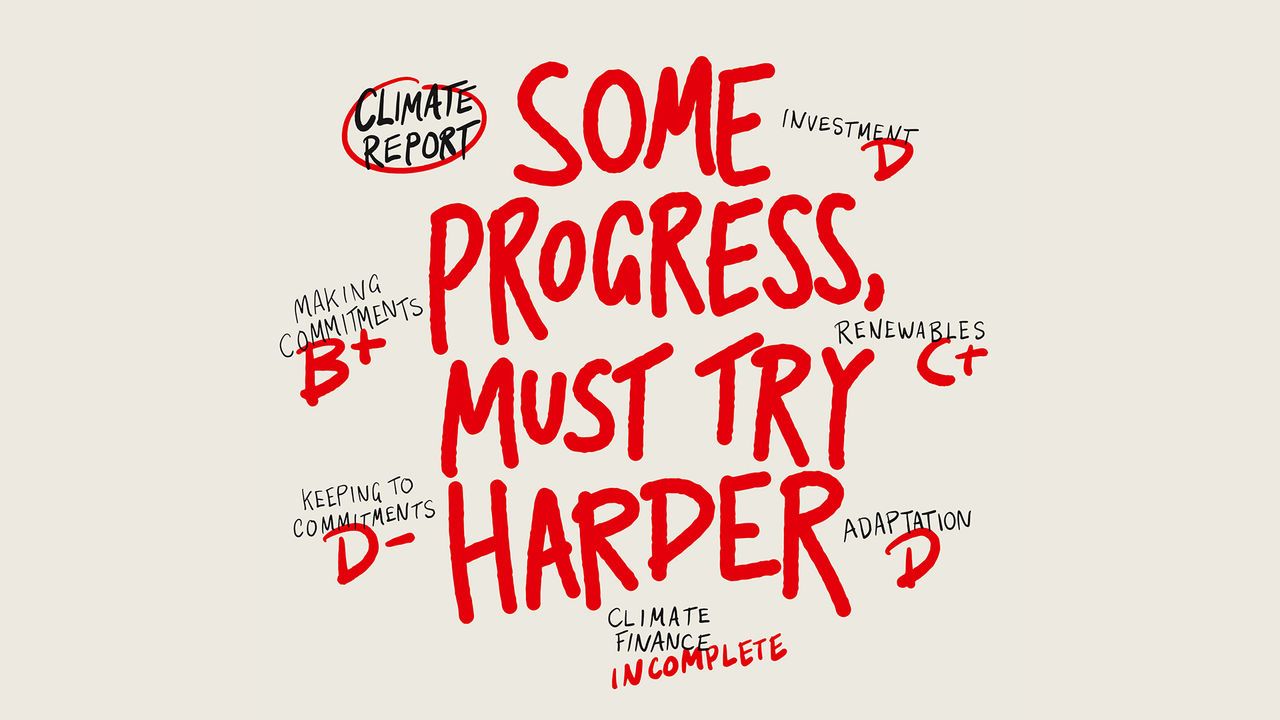 CLIMATE
REPORT
SOME
PROGRESS,
MUST TRY
HARDER
INVESTMENT
D
MAKING
COMMITMENTS
B+
RENEWABLES
C+
KEEPING TO
COMMITMENTS
D-
ADAPTATION
D
CLIMATE
FINANCE
INCOMPLETE